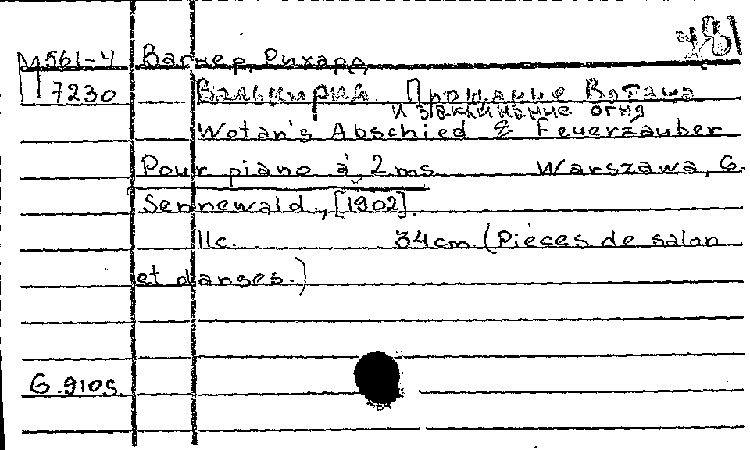 М 561-4 Вагнер, Рихард
7230 Валькирия. Прощание Вотана
и заклинание огня
Wotan's Abschied & Feuerzauber
Pour piano à 2 ms. Warszawa, G.
Sennewald, [1902].
11 с. 34 cm. (Pièces de salon
et danses.)
G. 910 S.